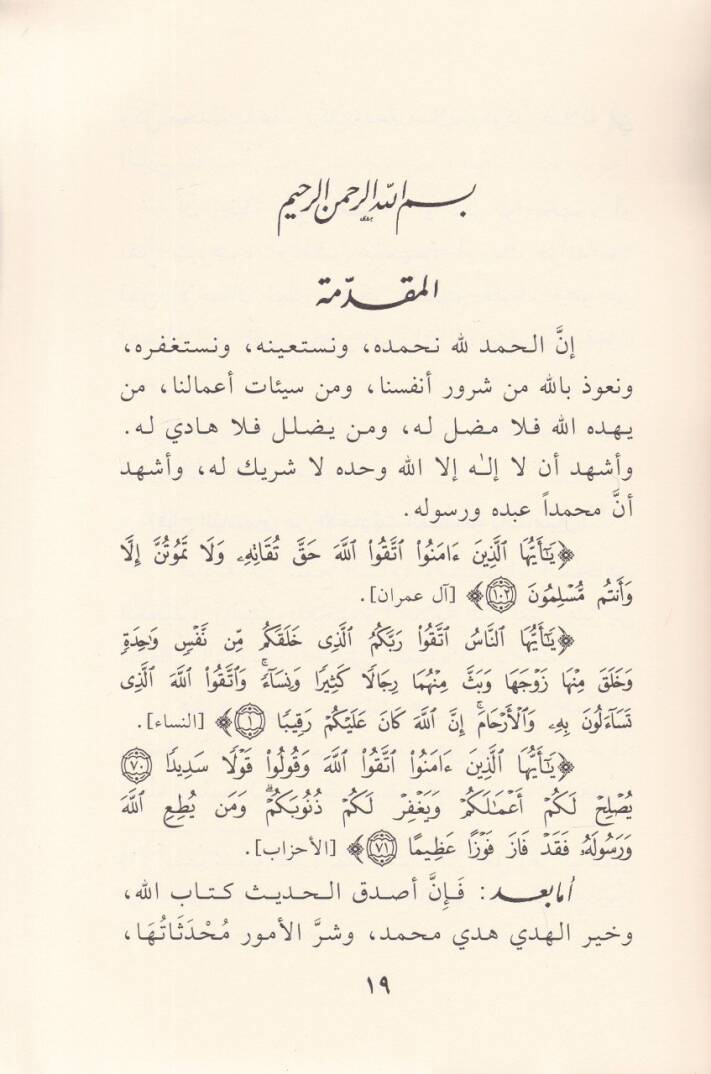 بسم الله الرحمن الرحيم
المقدّمة
إنَّ الحمد لله نحمده، ونستعينه، ونستغفره،
ونعوذ بالله من شرور أنفسنا، ومن سيئات أعمالنا، من
يهده الله فلا مضل له، ومن يضلل فلا هادي له.
وأشهد أن لا إلـٰه إلا الله وحده لا شريك له، وأشهد
أنَّ محمداً عبده ورسوله.
﴿يَـٰٓأَيُّهَا ٱلَّذِينَ ءَامَنُوا۟ ٱتَّقُوا۟ ٱللَّهَ حَقَّ تُقَاتِهِۦ وَلَا تَمُوتُنَّ إِلَّا
وَأَنتُم مُّسْلِمُونَ ١٠٢﴾ [آل عمران].
﴿يَـٰٓأَيُّهَا ٱلنَّاسُ ٱتَّقُوا۟ رَبَّكُمُ ٱلَّذِى خَلَقَكُم مِّن نَّفْسٍ وَٰحِدَةٍ
وَخَلَقَ مِنْهَا زَوْجَهَا وَبَثَّ مِنْهُمَا رِجَالًا كَثِيرًا وَنِسَآءً ۚ وَٱتَّقُوا۟ ٱللَّهَ ٱلَّذِى
تَسَآءَلُونَ بِهِۦ وَٱلْأَرْحَامَ ۚ إِنَّ ٱللَّهَ كَانَ عَلَيْكُمْ رَقِيبًا ١﴾ [النساء].
﴿يَـٰٓأَيُّهَا ٱلَّذِينَ ءَامَنُوا۟ ٱتَّقُوا۟ ٱللَّهَ وَقُولُوا۟ قَوْلًا سَدِيدًا ٧٠
يُصْلِحْ لَكُمْ أَعْمَـٰلَكُمْ وَيَغْفِرْ لَكُمْ ذُنُوبَكُمْ ۗ وَمَن يُطِعِ ٱللَّهَ
وَرَسُولَهُۥ فَقَدْ فَازَ فَوْزًا عَظِيمًا ٧١﴾ [الأحزاب].
أما بعد: فَإِنَّ أصدق الحديث كتاب الله،
وخير الهدي هدي محمد، وشرَّ الأمور مُحْدَثَاتُهَا،
١٩